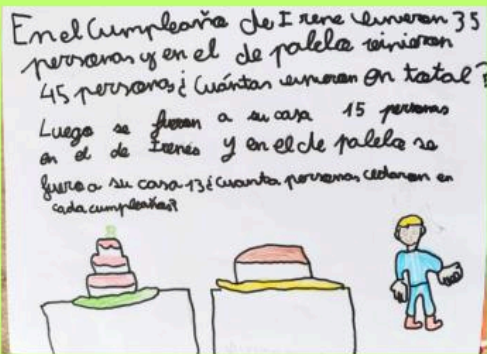 En el Cumpleaña de Irene vinieron 35
personas y en el de palela vinieron
45 personas ¿Cuántas vinieron en total?
Luego se fueron a su casa 15 personas
en el de Irenes y en el de palela se
fuero a su casa 13 ¿cuanta personas cedaron en
cada cumpleaños?